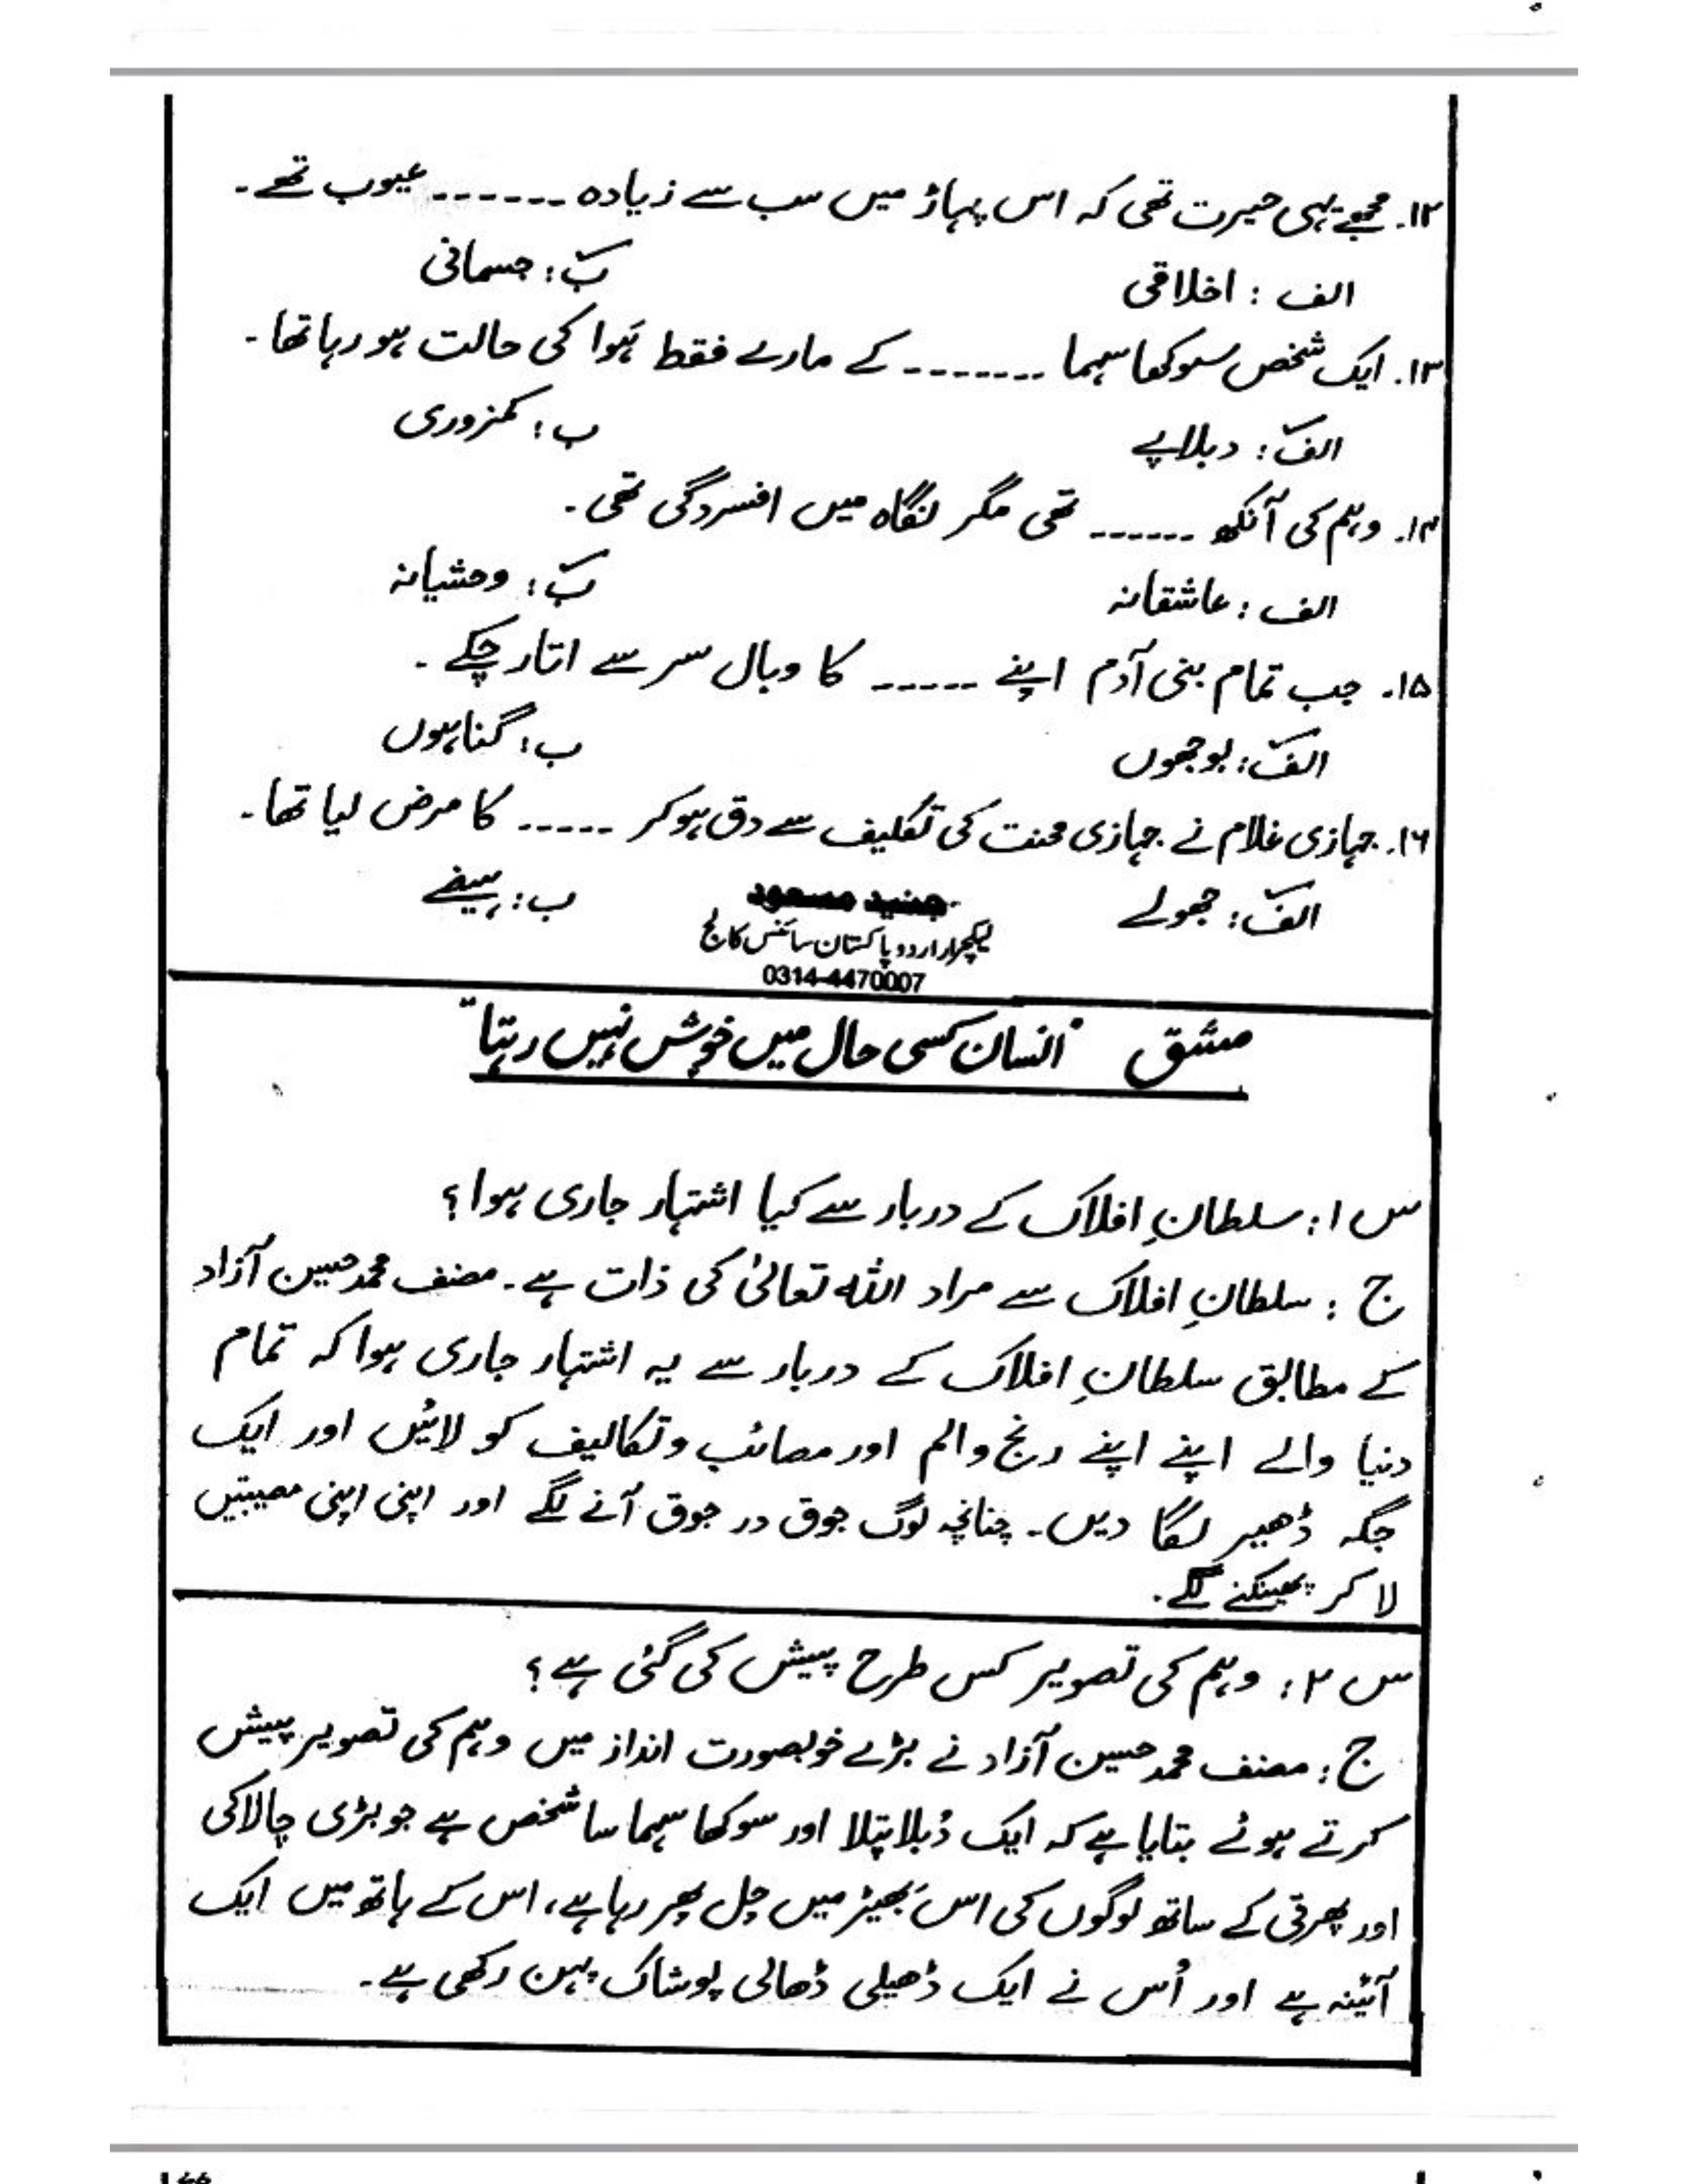 ۱۲. مجھے یہی حیرت تھی کہ اس پہاڑ میں سب سے زیادہ ------- عیوب تھے۔
الف : اخلاقی ب : جسمانی
۱۳. ایک شخص سوکھا سہما ------- کے مارے فقط ہوا کی حالت ہو رہا تھا۔
الف : دبلاپے ب : کمزوری
۱۴. وہم کی آنکھ ------ تھی مگر نگاہ میں افسردگی تھی۔
الف : عاشقانہ ب : وحشیانہ
۱۵. جب تمام بنی آدم اپنے ------ کا وبال سر سے اتار چکے۔
الف : بوجھوں ب : گناہوں
۱۶. جہازی غلام نے جہازی محنت کی تکلیف سے دق ہو کر ----- کا مرض لیا تھا۔
الف : جھولے ب : ہیضے
جنید مسعود
لیکچرار اردو پاکستان سائنس کالج
0314-4470007
مشق "انسان کسی حال میں خوش نہیں رہتا"
س ۱ : سلطانِ افلاک کے دربار سے کیا اشتہار جاری ہوا؟
ج : سلطانِ افلاک سے مراد اللہ تعالیٰ کی ذات ہے۔ مصنف محمد حسین آزاد
کے مطابق سلطانِ افلاک کے دربار سے یہ اشتہار جاری ہوا کہ تمام
دنیا والے اپنے اپنے رنج و الم اور مصائب و تکالیف کو لائیں اور ایک
جگہ ڈھیر لگا دیں۔ چنانچہ لوگ جوق در جوق آنے لگے اور اپنی اپنی مصیبتیں
لا کر پھینکنے لگے۔
س ۲ : وہم کی تصویر کس طرح پیش کی گئی ہے؟
ج : مصنف محمد حسین آزاد نے بڑے خوبصورت انداز میں وہم کی تصویر پیش
کرتے ہوئے بتایا ہے کہ ایک دُبلا پتلا اور سوکھا سہما سا شخص ہے جو بڑی چالاکی
اور پھرتی کے ساتھ لوگوں کی اس بھیڑ میں چل پھر رہا ہے، اس کے ہاتھ میں ایک
آئینہ ہے اور اُس نے ایک ڈھیلی ڈھالی پوشاک پہن رکھی ہے۔